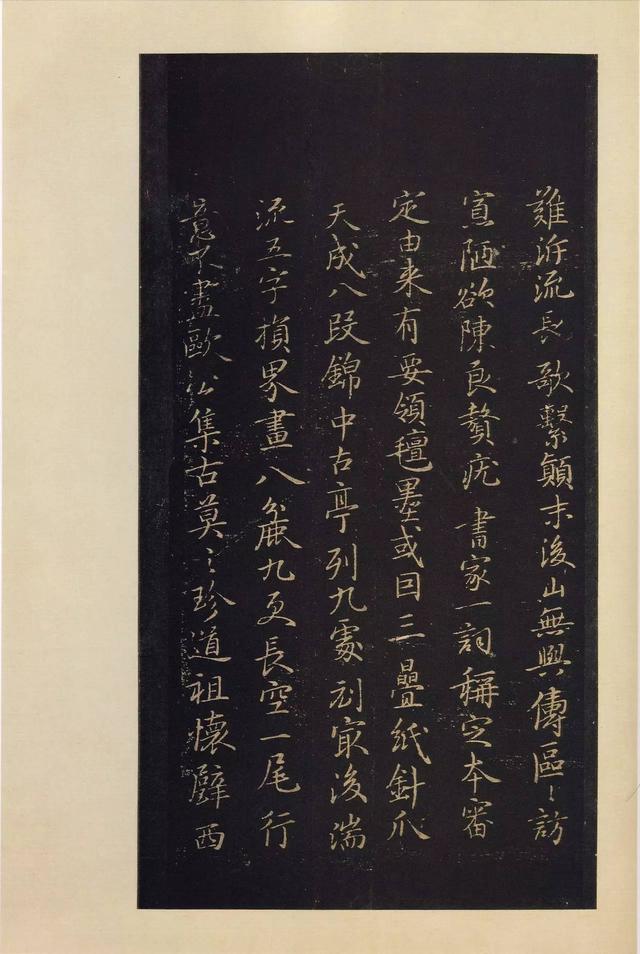 難泝流長歌繫顛末後山無與傳區〻訪
寡陋欲陳良贅疣書家一詞稱定本審
定由来有要領氊墨或回三疊紙針爪
天成八段錦中古亭列九處刓最後湍
流五字損界畫八麁九更長空一尾行
意不盡歐公集古莫之珍道祖懷璧西